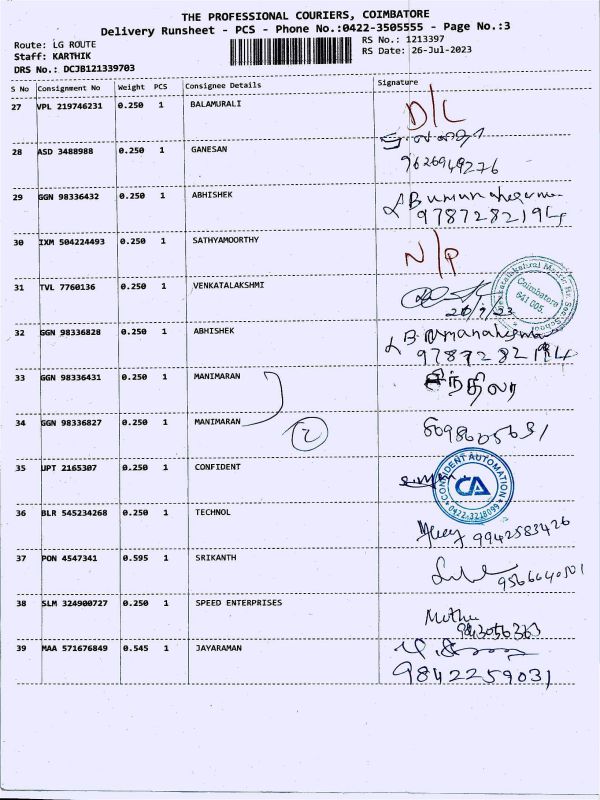 THE PROFESSIONAL COURIERS, COIMBATORE
Delivery Runsheet - PCS - Phone No.:0422-3505555 - Page No.:3
Route: LG ROUTE
RS No.: 1213397
Staff: KARTHIK
RS Date: 26-Jul-2023
DRS No.: DCJB121339703
S No Consignment No Weight PCS Consignee Details Signature
27 VPL 219746231 0.250 1 BALAMURALI D/L
28 ASD 3488988 0.250 1 GANESAN
9626949276
29 GGN 98336432 0.250 1 ABHISHEK
9787282194
30 IXM 504224493 0.250 1 SATHYAMOORTHY N/P
31 TVL 7760136 0.250 1 VENKATALAKSHMI
Coimbatore
641 005.
32 GGN 98336828 0.250 1 ABHISHEK
9787282194
33 GGN 98336431 0.250 1 MANIMARAN
34 GGN 98336827 0.250 1 MANIMARAN 2 8098605631
35 UPT 2165307 0.250 1 CONFIDENT
CONFIDENT AUTOMATION
CA
0422-3218099
36 BLR 545234268 0.250 1 TECHNOL
9942583426
37 PON 4547341 0.595 1 SRIKANTH
9566640501
38 SLM 324900727 0.250 1 SPEED ENTERPRISES
Muthu
9843056363
39 MAA 571676849 0.545 1 JAYARAMAN
9842259031